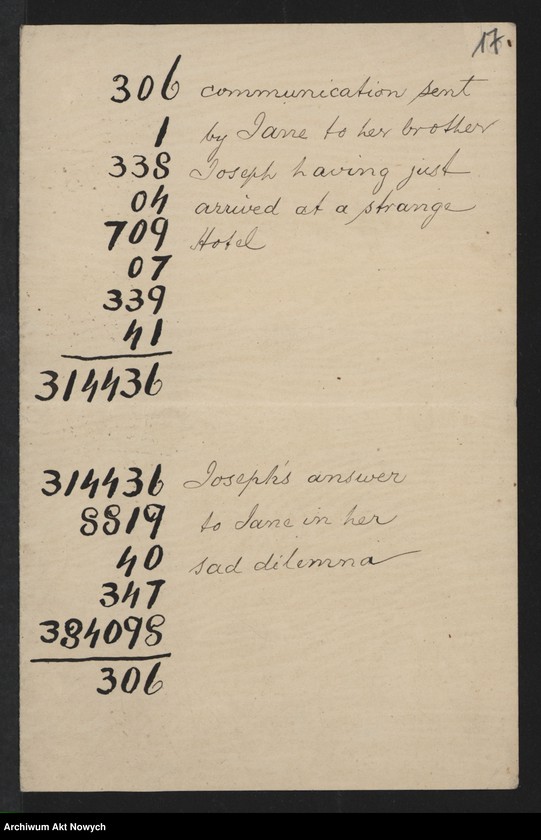 17.
306 communication sent
1 by Jane to her brother
338 Joseph having just
04 arrived at a strange
709 Hotel
07
339
41
314436
314436 Joseph's answer
8819 to Jane in her
40 sad dilemna
347
384098
306
Archiwum Akt Nowych